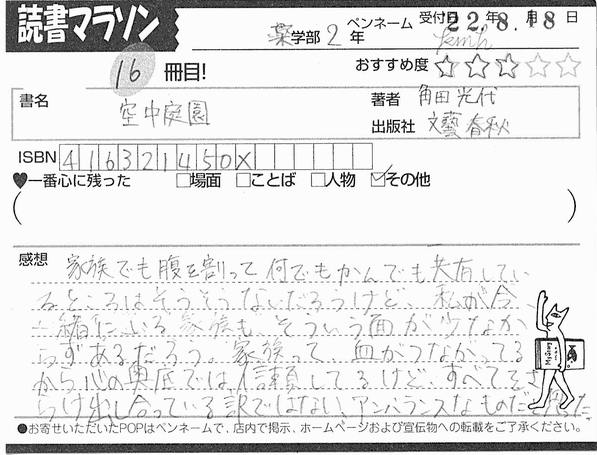 読書マラソン
薬学部2年
ペンネーム
受付日 22年8.月18日
16冊目!
おすすめ度 ☆☆☆☆☆
書名 空中庭園
著者 角田光代
出版社 文藝春秋
ISBN 416321450X
♥一番心に残った □場面 □ことば □人物 ☑その他
( )
感想 家族でも腹を割って何でもかんでも共有してい
るところはそうそうないだろうけど、私が今、
一緒にいる家族も、そういう面が少なか
らずあるだろう。家族って、血がつながってる
から心の奥底では信頼してるけど、すべてをさ
らけ出し合っている訳ではない、アンバランスなものだと
●お寄せいただいたPOPはペンネームで、店内で掲示、ホームページおよび宣伝物への転載をご了承ください。